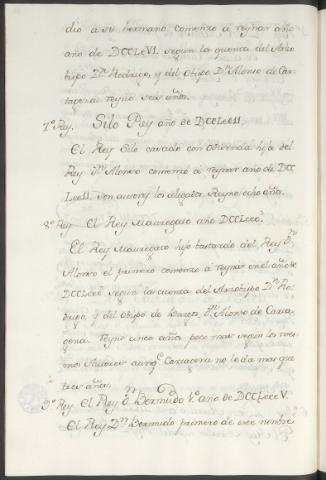 dio a su hermano comenzo á reynar año
año de DCCLVI. segun la quenta del Arzo
bispo Dⁿ Rodrigo, y del Obispo Dⁿ Alonso de Car
tagena reyno seis años.
7º Rey. Silo Rey año de DCCLxxII.
El Rey Silo casado con Odisenda hija del
Rey Dⁿ Alonso comenzó a reynar año de DCC
LxxII. son autores los alegados Reyno ocho años.
8º Rey El Rey Mauregato año DCCLxxx.
El Rey Mauregato hijo bastardo del Rey Dⁿ
Alonso el primero comenzo á reynar en el año de
DCCLxxx segun la cuenta del Arzobispo Dⁿ Ro
drigo, y del Obispo de Burgos, Dⁿ Alonso de Carta
gena. Reyno cinco años poco mas segun los mes
mos Autores aunq̃ Cartagena no le da mas que
tres años.
9º Rey. El Rey Dⁿ Bermudo 1º año de DCCLxxxV.
El Rey Dⁿ Bermudo primero de este nombre